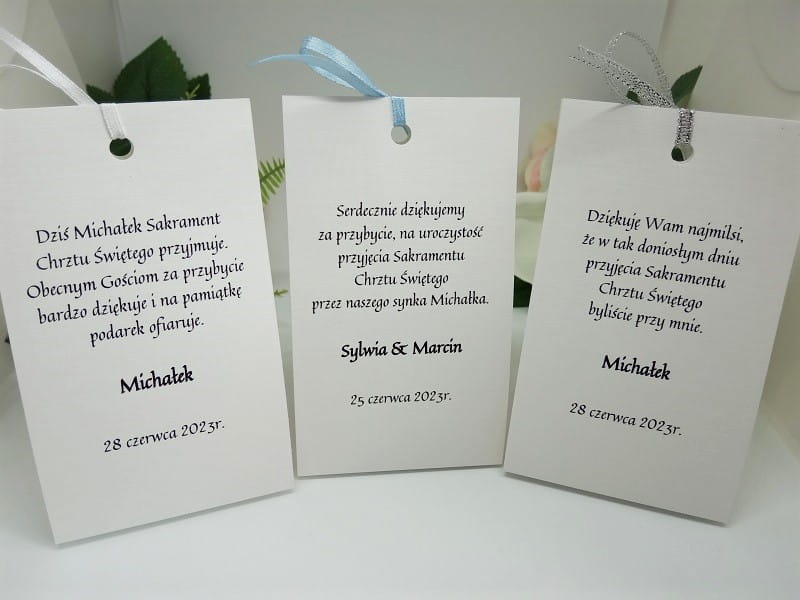 Dziś Michałek Sakrament
Chrztu Świętego przyjmuje.
Obecnym Gościom za przybycie
bardzo dziękuje i na pamiątkę
podarek ofiaruje.
Michałek
28 czerwca 2023r.
Serdecznie dziękujemy
za przybycie, na uroczystość
przyjęcia Sakramentu
Chrztu Świętego
przez naszego synka Michałka.
Sylwia & Marcin
25 czerwca 2023r.
Dziękuję Wam najmilsi,
że w tak doniosłym dniu
przyjęcia Sakramentu
Chrztu Świętego
byliście przy mnie.
Michałek
28 czerwca 2023r.